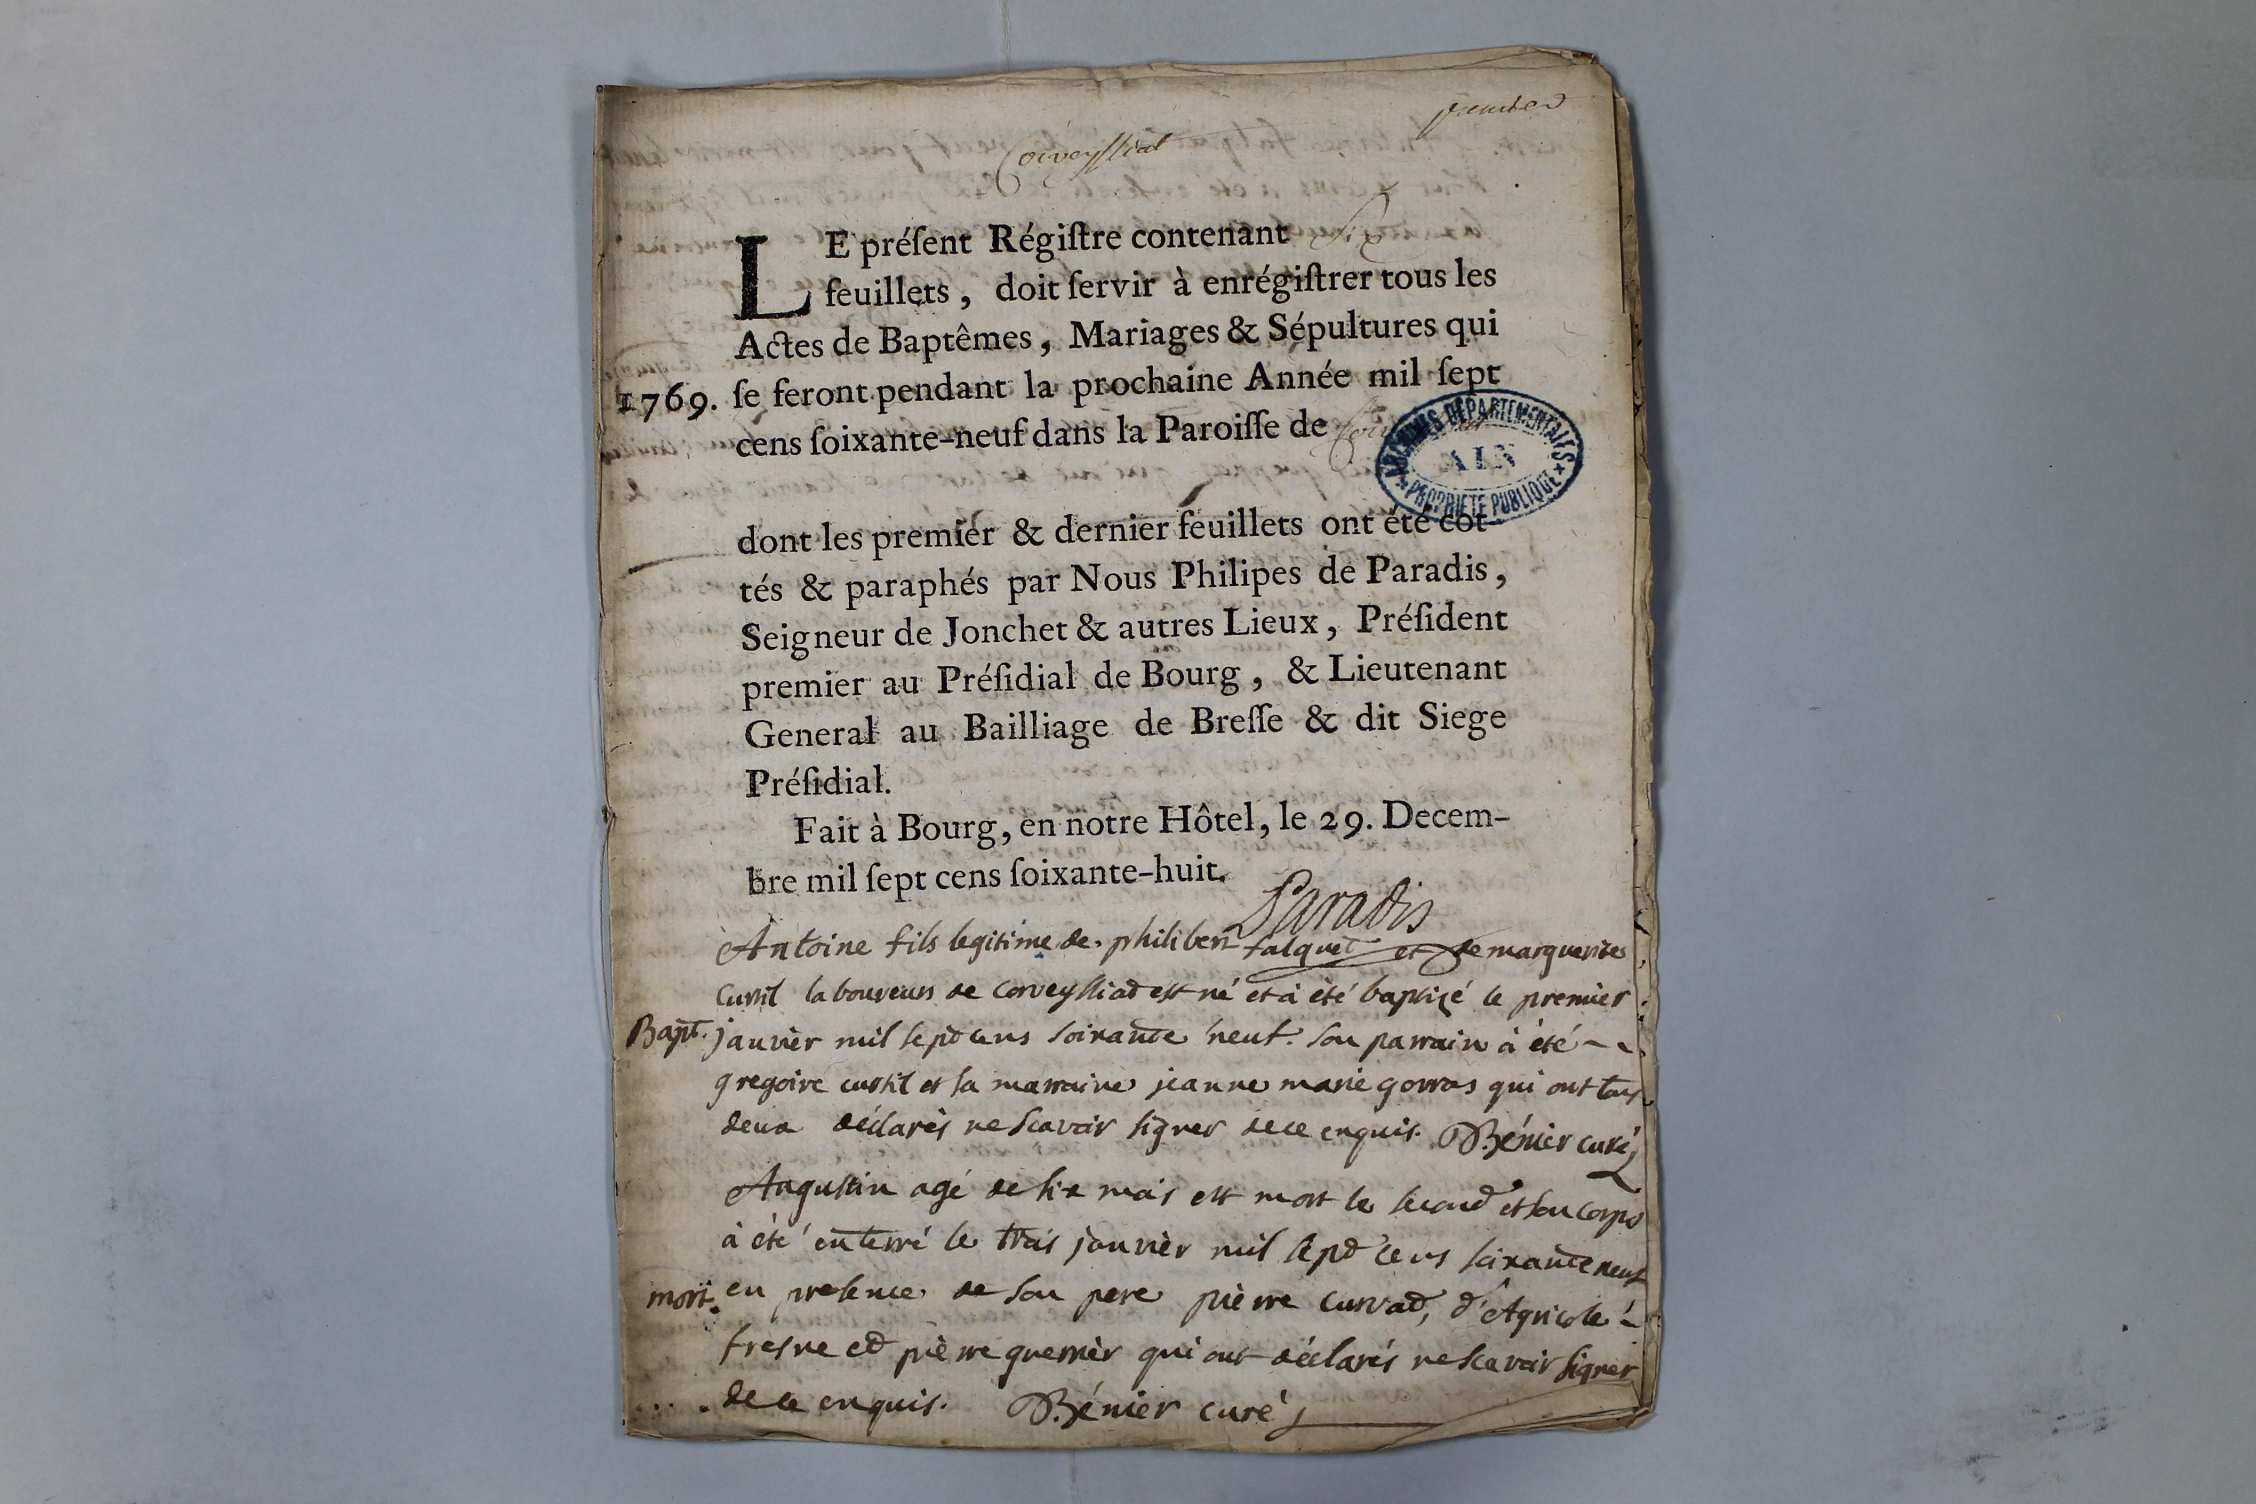 premier
Corveyssiat
LE préſent Régiſtre contenant six
feuillets, doit ſervir à enrégiſtrer tous les
Actes de Baptêmes, Mariages & Sépultures qui
1769. ſe feront pendant la prochaine Année mil ſept
cens ſoixante-neuf dans la Paroiſſe de
ARCHIVES DÉPARTEMENTALES
AIN
PROPRIÉTÉ PUBLIQUE
dont les premier & dernier feuillets ont été cot-
tés & paraphés par Nous Philipes de Paradis,
Seigneur de Jonchet & autres Lieux, Préſident
premier au Préſidial de Bourg, & Lieutenant
General au Bailliage de Breſſe & dit Siege
Préſidial.
Fait à Bourg, en notre Hôtel, le 29. Decem-
bre mil ſept cens ſoixante-huit.
Paradis
Antoine fils legitime de philibert falquet et de marguerite
Curtil laboureurs de Corveyssiad est né et à été baptizé le premier
Bapt. janvièr mil sepd cens soixante neuf. son parrain à été
gregoire curtil et sa marraine jeanne marie gorras qui ont tous
deux déclarès ne scavoir signer de ce enquis. Bénier curé
Augustin agé de six mois est mort le second et son corps
à été enterré le trois janvièr mil sepd cens soixante neuf
mort. en presence de son pere pièrre curvad, d'Agricole
fresne ed pièrre guerrièr qui ont déclarés ne scavoir signer
de ce enquis. Bénier curé